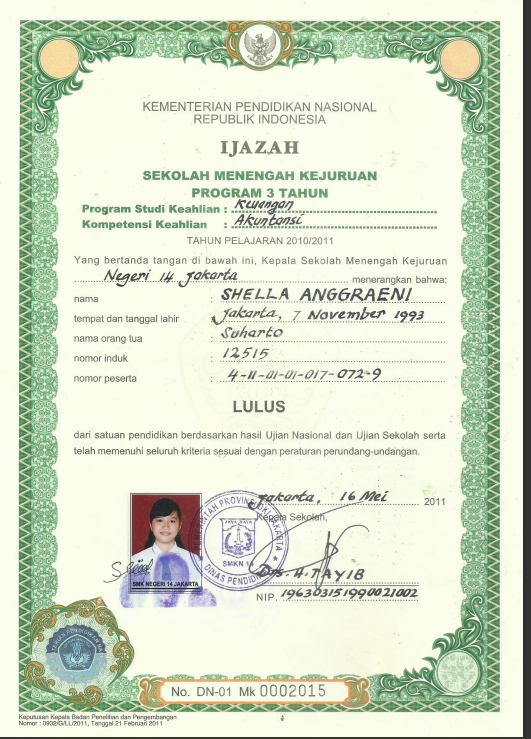 KEMENTERIAN PENDIDIKAN NASIONAL
REPUBLIK INDONESIA
IJAZAH
SEKOLAH MENENGAH KEJURUAN
PROGRAM 3 TAHUN
Program Studi Keahlian : Keuangan
Kompetensi Keahlian : Akuntansi
TAHUN PELAJARAN 2010/2011
Yang bertanda tangan di bawah ini, Kepala Sekolah Menengah Kejuruan
Negeri 14 Jakarta menerangkan bahwa:
nama : SHELLA ANGGRAENI
tempat dan tanggal lahir : Jakarta, 7 November 1993
nama orang tua : Suharto
nomor induk : 12515
nomor peserta : 4-11-01-01-017-072-9
LULUS
dari satuan pendidikan berdasarkan hasil Ujian Nasional dan Ujian Sekolah serta
telah memenuhi seluruh kriteria sesuai dengan peraturan perundang-undangan.
Jakarta, 16 Mei 2011
Kepala Sekolah,
JAYA RAYA
SMKN 14
DINAS PENDIDIKAN
SMK NEGERI 14 JAKARTA
Drs. H. TAYIB
NIP. 196303151990021002
No. DN-01 Mk 0002015
Keputusan Kepala Badan Penelitian dan Pengembangan
Nomor : 0932/G/LL/2011, Tanggal 21 Februari 2011